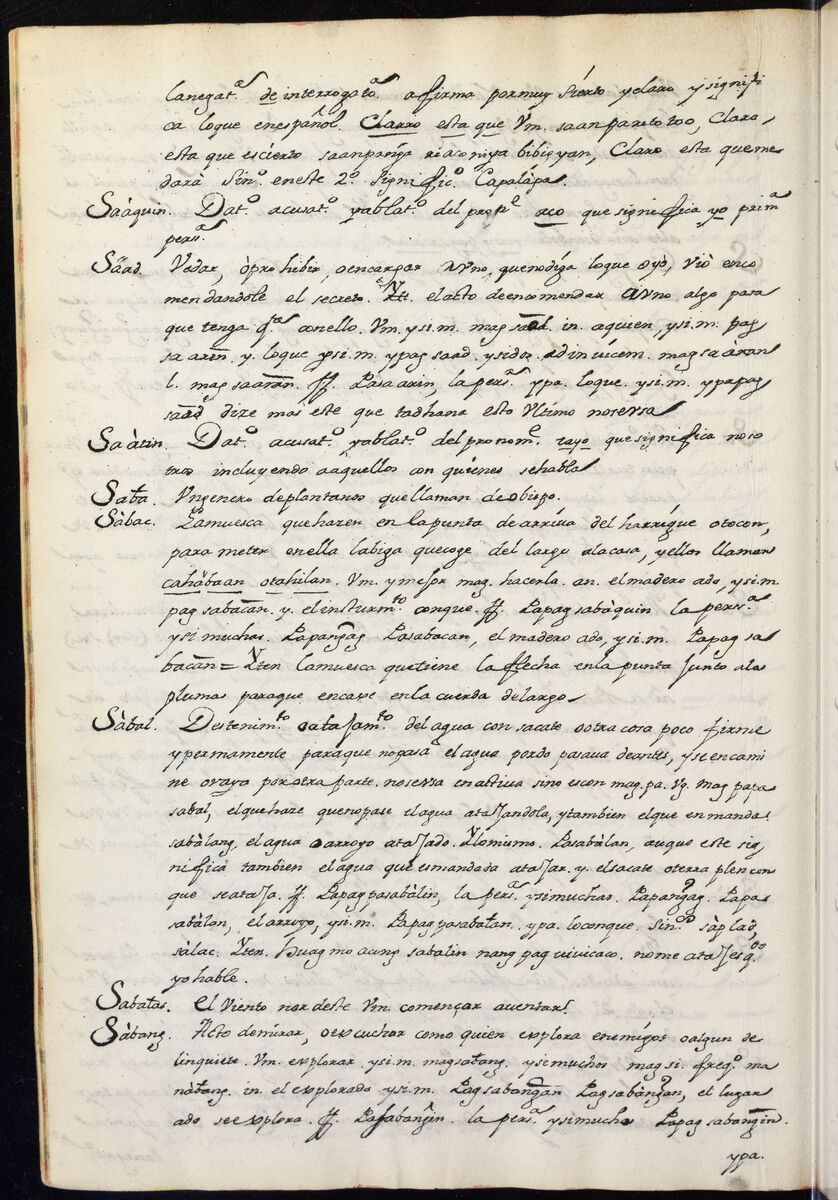 la negat.ᵃ de interrogatᵃ. afirma por muy sierto y claro y signifi
ca lo que en español. Clarro esta que Vm. saan pareto too, Clara
esta que es cierto saan panga riaco niya bibigyan, Claro esta que me
darà Sin.º en este 2.º signific.º Capalàpa.
Saàquin. Dat.º acusat.º y ablat.º del pron.ᵉ aco que significa yo prim.ᵃ
pers.ᵃ
Sàad. Vedar, ò pro hibir, o encargar a Vno, que no diga lo que oyo, viò enco
mendandole el secreto. Ytt. el acto de encomendar a Vno algo para
que tenga q.ᵗᵃ con ello. Vm. y si. m. mag saad. in. a quien, y si. m. pag
sa aren. y. lo que y si. m. ypag saad. y si dos ad invicem. mag sa àran
l. mag saaran. ff. Pasa arin, la pers.ᵃ ypa. lo que. y si. m. ypapag
saad dize mas este que tadhana esto Vltimo no se usa
Saàtin. Dat.º acusat.º y ablat.º del pronom.ᵉ tayo que significa noso
tros incluyendo a aquellos con quienes se habla
Saba. Vn genero de plantanos que llaman de obispo.
Sàbac. La muesca que hazen en la punta de arriva del harrigue o tocon,
para meter en ella la biga que coge del largo a la casa, y ellos llaman
cahàbaan o tahilan. Vm. y mejor mag. hacerla. an. el madero ado, y si. m.
pag sabacan. y. el insturm.ᵗᵒ conque. ff. Papag sabàquin la pers.ᵃ
y si muchas. Papangag Pasabacan, el madero ado, y si. m. Papag sa
bacan = Yten la muesca que tiene la flecha en la punta junto a las
plumas para que encaxe en la cuerda del arco
Sàbal. Destenim.ᵗᵒ o atajam.ᵗᵒ del agua con sacate o otra cosa poco firme
y permamente para que no pasa el agua por do pasava de antes, y se encami
ne o vaya por otra parte. no se usa en activa sino es con mag. pa. Vg. mag papa
sabal, el que haze que no pase el agua atajandola, y tambien el que en manda.
sabàlang, el agua o arroyo atajado. Vlo mismo. Pasabàlan, auque este sig
nifica tambien el agua que es mandada atajar. y. el sacate o terra plen con
que se ataja. ff. Papag pasabàlin, la pers.ᵃ y si muchas. Papangag. Papa
sabàlan, el arroyo, y si. m. Papag pasabalan. ypa. lo conque. Sin.º sàplad,
sàlac. Yten. Huag mo acung sabalin nang pag uiuicaco. no me atajes q.ᵈᵒ
yo hable.
Sabalas. El Viento nor deste Vm. començar aventar.
Sàbang. Acto de mirar, o escuchar como quien explora enemigos o algun de
linquiete. Vm. explorar y si. m. magsabang. y si muchos mag si. freq.º ma
nàbang. in. el explorada y si. m. Pag sabangan Pag sabàngan, el lugar
ado se explora. ff. Pasabangin. la pers.ᵃ y si mucho Papag sabangin.
ypa.